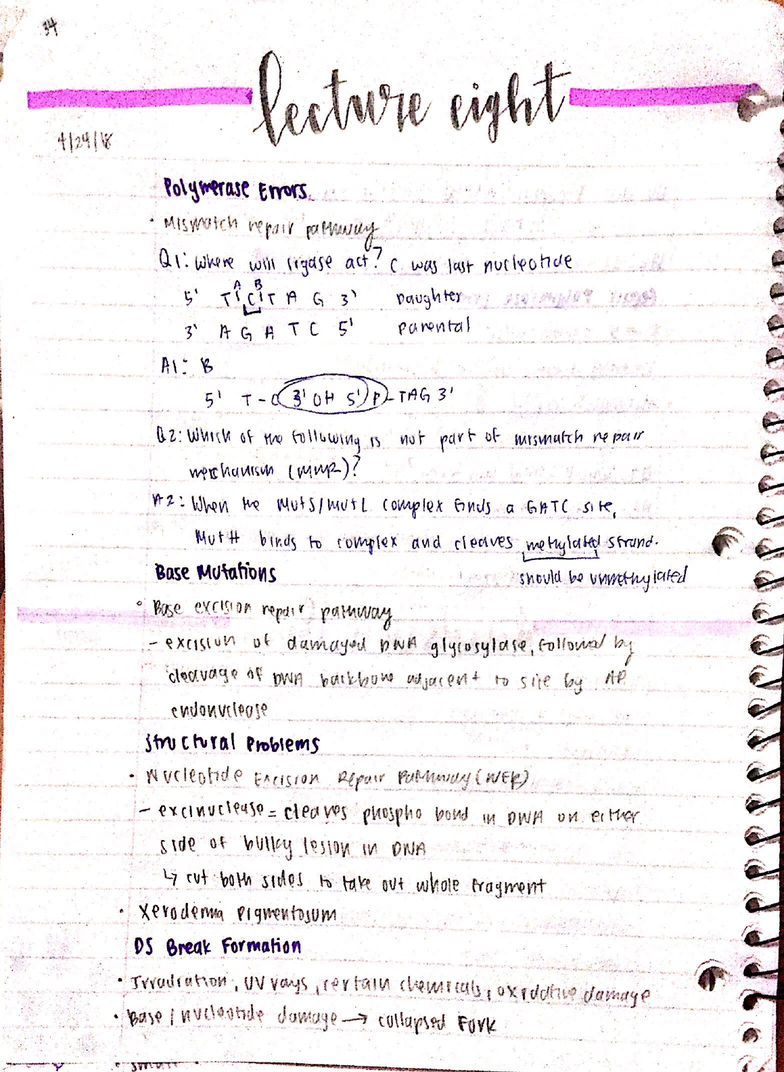 34
lecture eight
4/24/18
Polymerase Errors
• Mismatch repair pathway
Q1: Where will ligase act? C was last nucleotide
A B
5' T C T A G 3' Daughter
3' A G A T C 5' Parental
A1: B
5' T-C 3' OH 5' P-TAG 3'
Q2: Which of the following is not part of mismatch repair
mechanism (MMR)?
A2: When the MutS/MutL complex finds a GATC site,
MutH binds to complex and cleaves methylated strand.
should be unmethylated
Base Mutations
• Base excision repair pathway
- excision of damaged DNA glycosylase, followed by
cleavage of DNA backbone adjacent to site by AP
endonuclease
Structural Problems
• Nucleotide Excision Repair Pathway (NER)
- excinuclease = cleaves phospho bond in DNA on either
side of bulky lesion in DNA
↳ cut both sides to take out whole fragment
• Xeroderma Pigmentosum
DS Break Formation
• Irradiation, UV rays, certain chemicals, oxidative damage
• Base/nucleotide damage → collapsed Fork